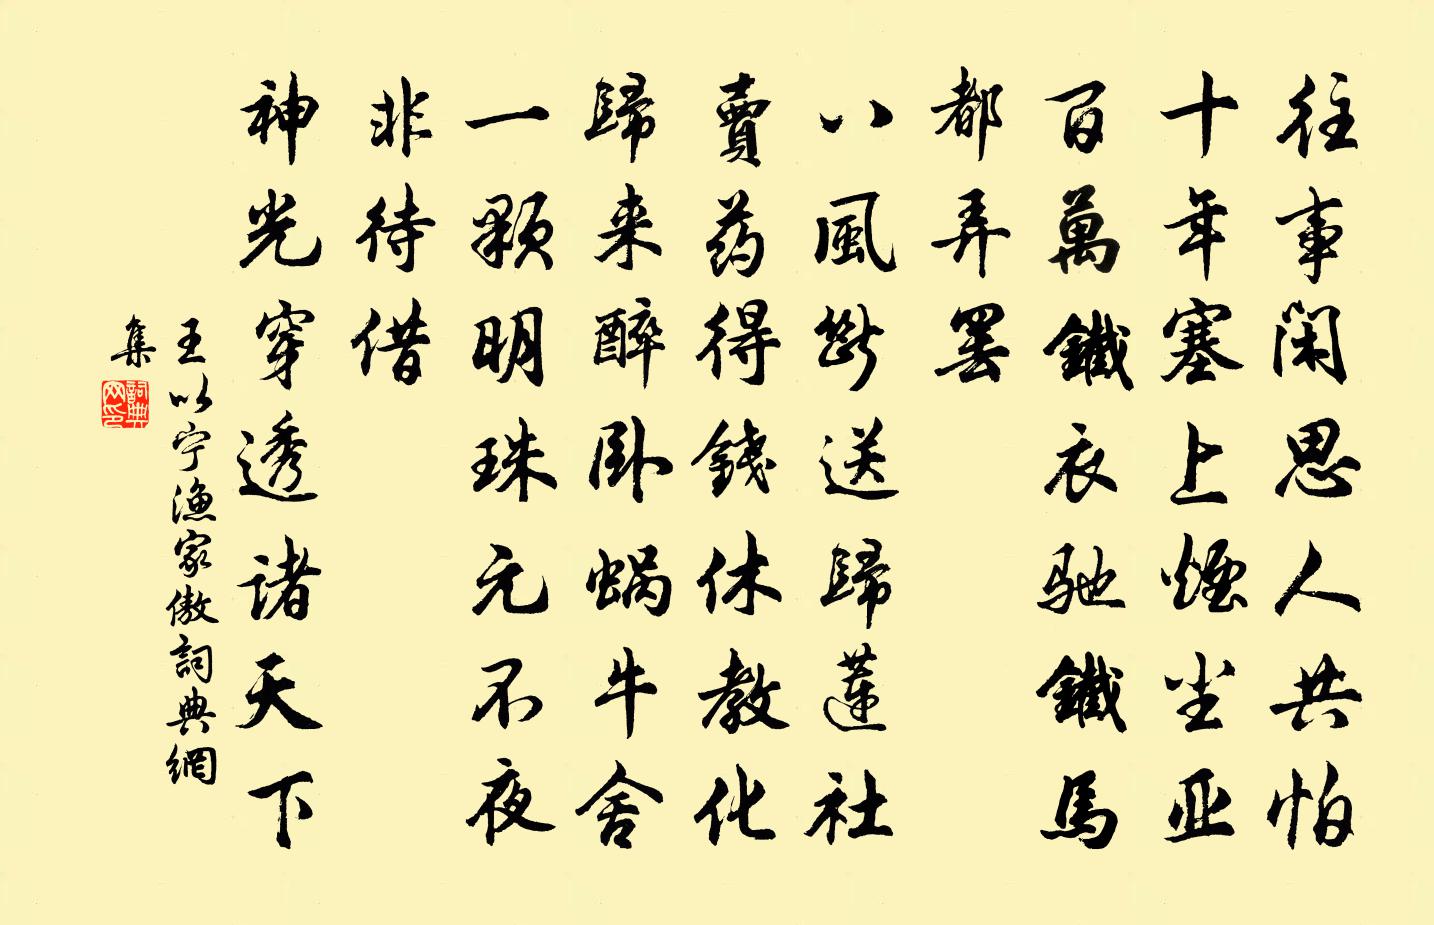 往事閑思人共怕
十年塞上煙尘亚
百萬鐵衣驰鐵馬
都弄罢
八風斷送歸蓮社
賣药得錢休教化
歸来醉卧蜗牛舍
一顆明珠元不夜
非待借
神光穿透诸天下
王以宁漁家傲詞典網
集
詞典網印